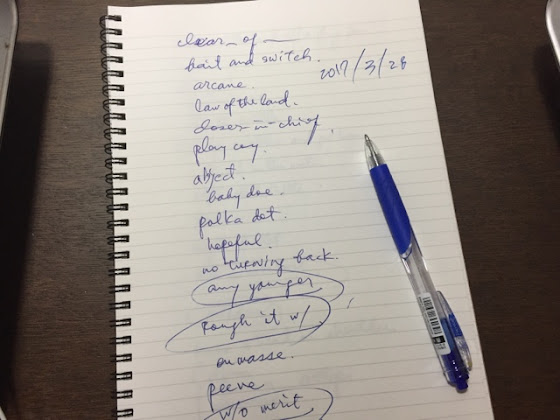 clear _ of _
bait and switch.
2017/3/28
arcane.
law of the land.
closer-in-chief.
play coy.
abject.
baby doe.
polka dot.
hopeful.
no turning back.
any younger
rough it w/
en masse.
peeve
w/o merit